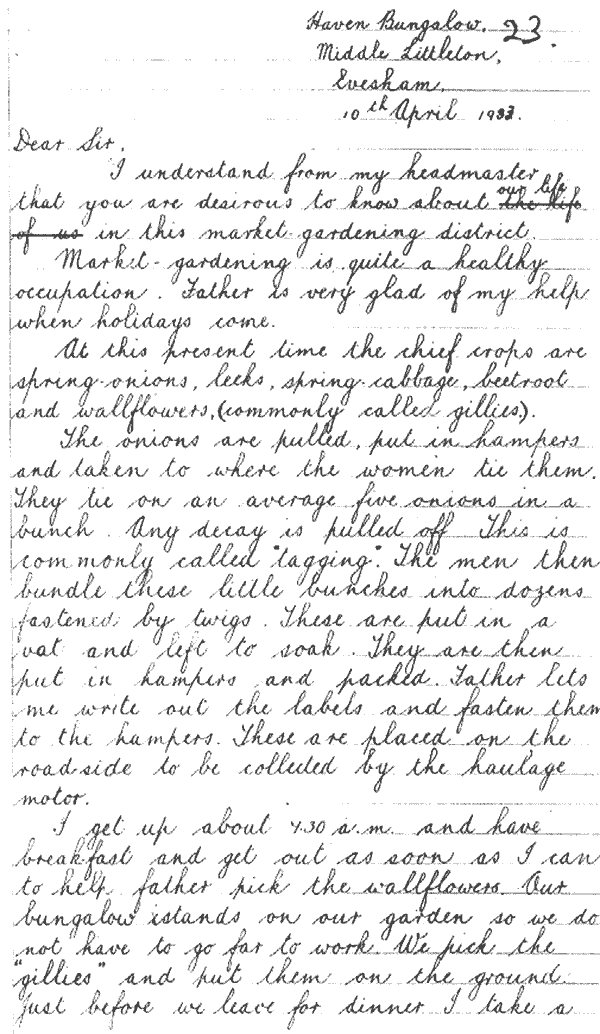 Haven Bungalow. 23.
Middle Littleton,
Evesham.
10th April 1933.
Dear Sir,
I understand from my headmaster
that you are desirous to know about our life the life
of us in this market-gardening district.
Market-gardening is quite a healthy
occupation. Father is very glad of my help
when holidays come.
At this present time the chief crops are
spring-onions, leeks, spring-cabbage, beetroot
and wallflowers, (commonly called gillies).
The onions are pulled, put in hampers
and taken to where the women tie them.
They tie on an average five onions in a
bunch. Any decay is pulled off This is
commonly called "tagging". The men then
bundle these little bunches into dozens
fastened by twigs. These are put in a
vat and left to soak. They are then
put in hampers and packed. Father lets
me write out the labels and fasten them
to the hampers. These are placed on the
road-side to be collected by the haulage
motor.
I get up about 7.30 a.m. and have
breakfast and get out as soon as I can
to help father pick the wallflowers. Our
bungalow stands on our garden so we do
not have to go far to work. We pick the
"gillies" and put them on the ground.
Just before we leave for dinner I take a